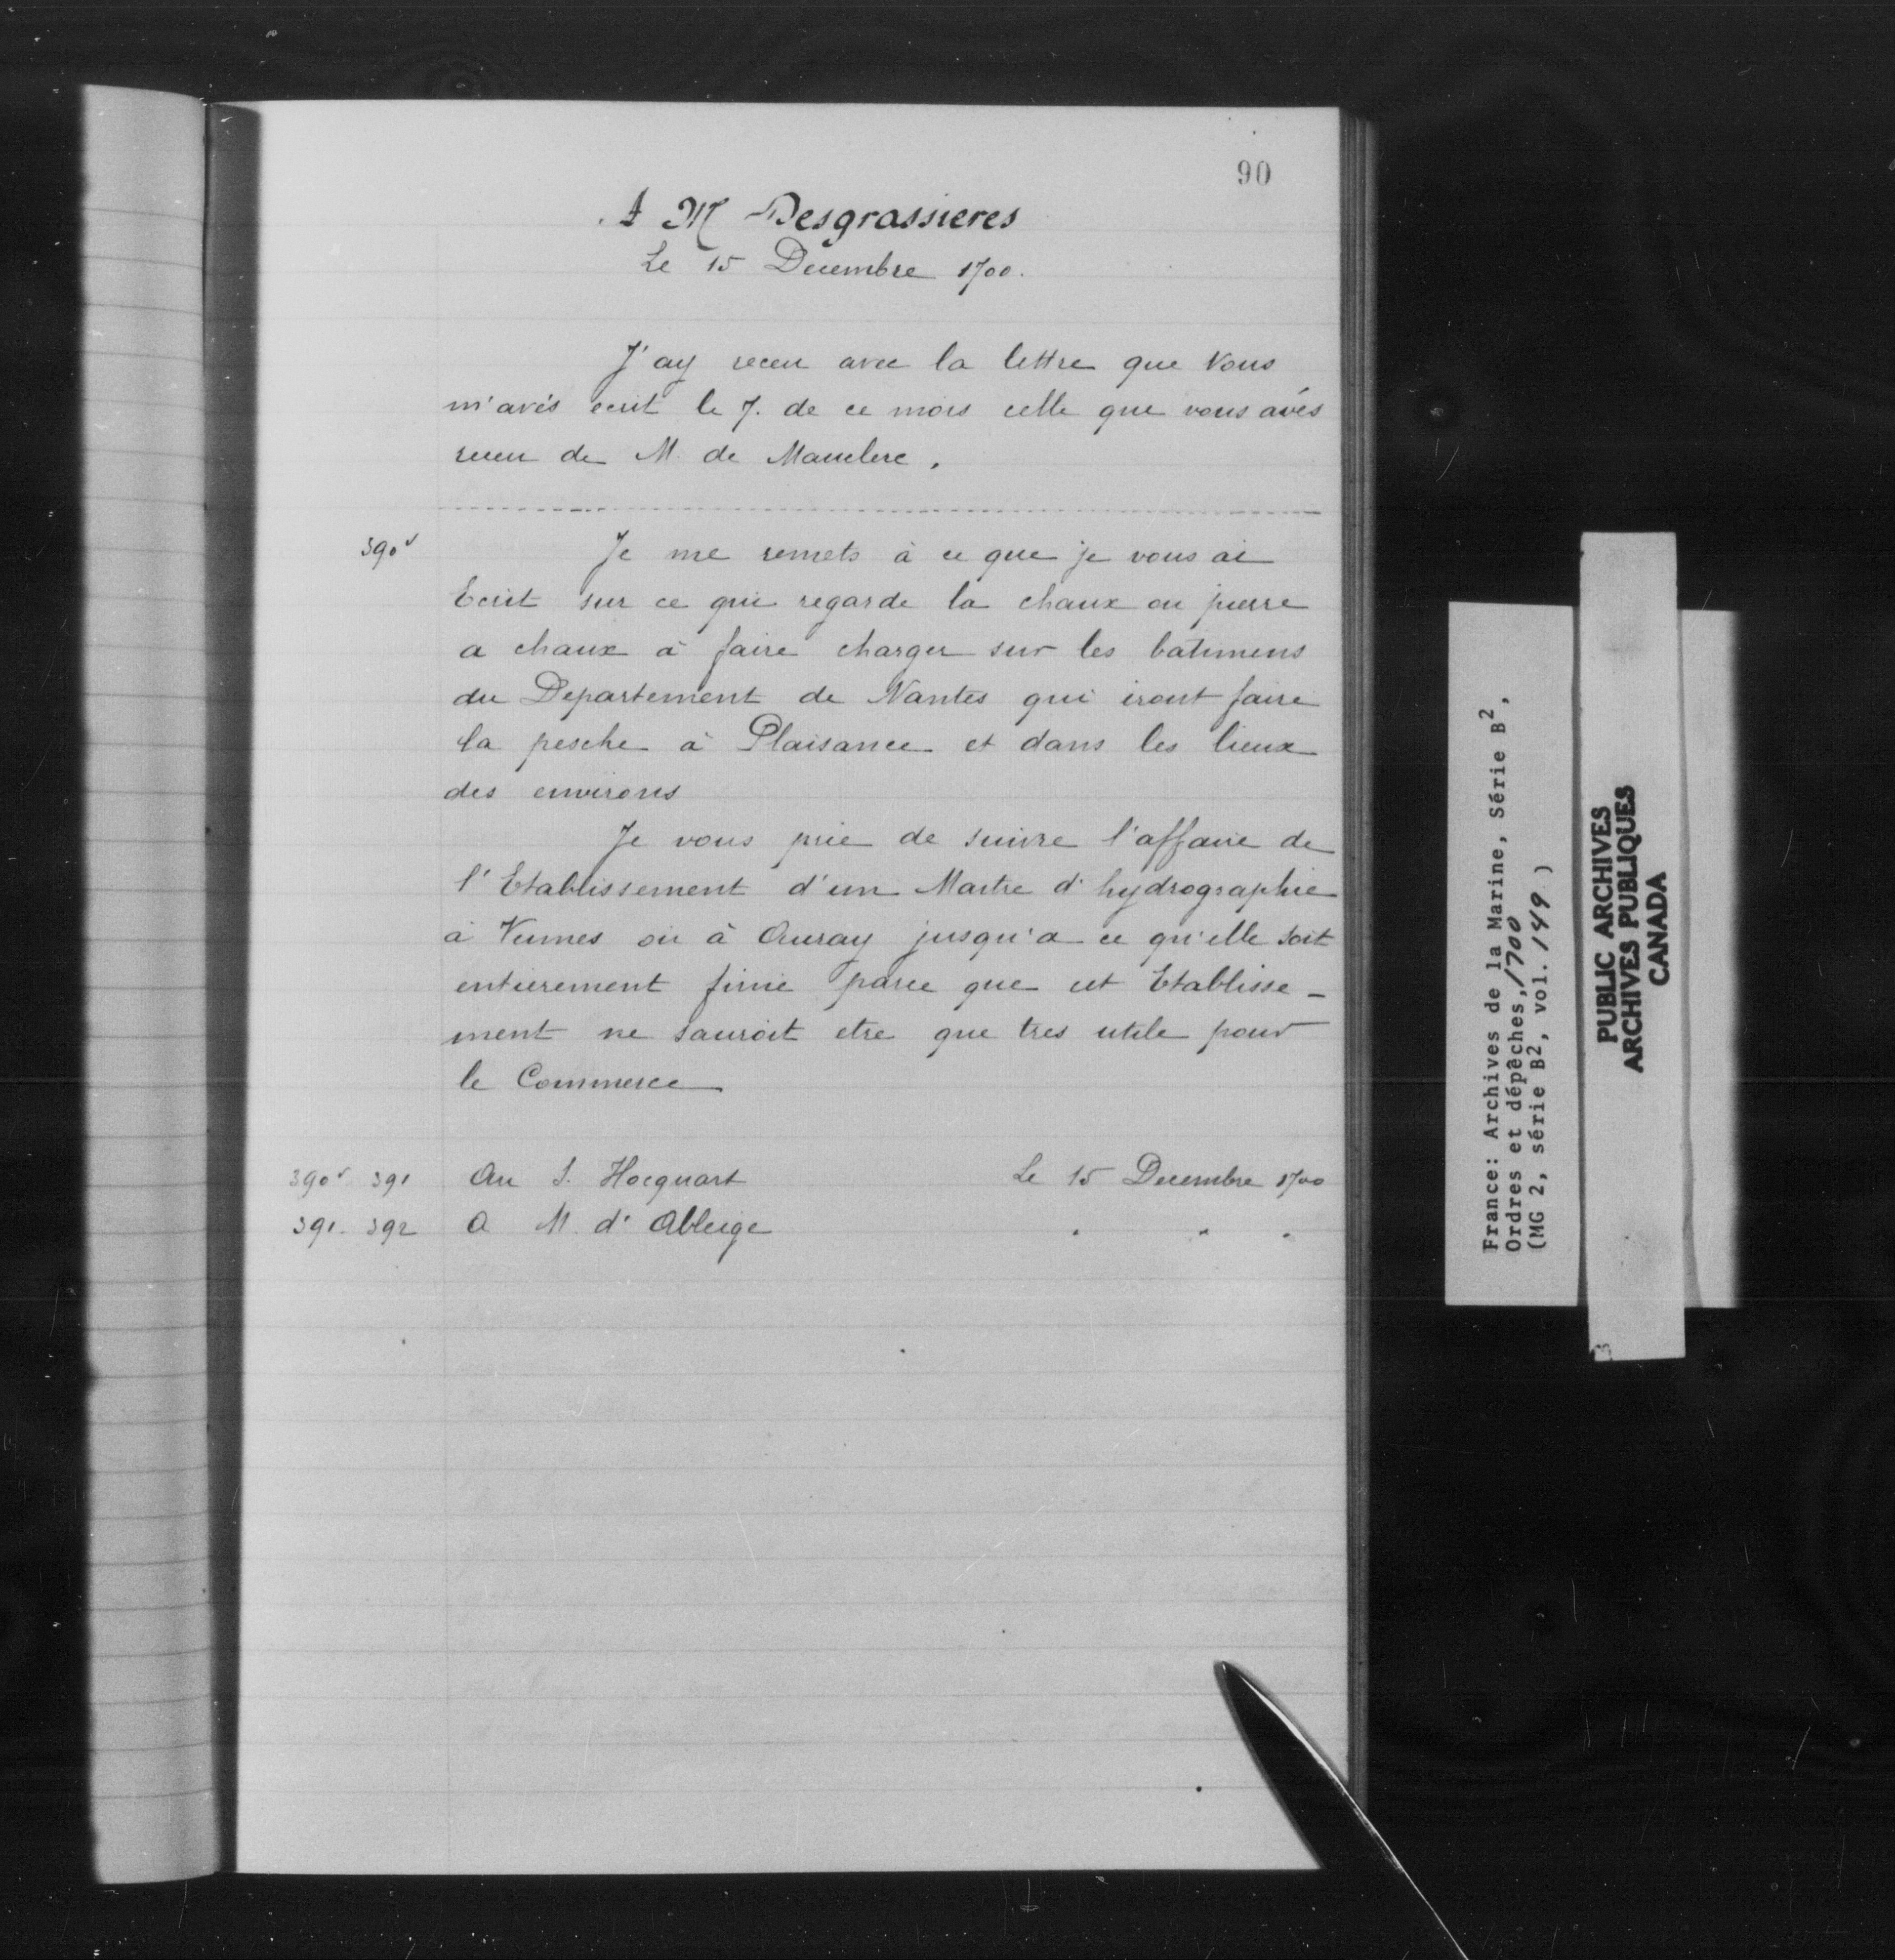 90
A M Desgrassieres
Le 15 Decembre 1700.
J'ay receu avec la lettre que Vous
m'avés ecrit le 7. de ce mois celle que vous avés
receu de M. de Mauclerc.
390v
Je me remets à ce que je vous ai
Ecrit sur ce qui regarde la chaux ou pierre
a chaux à faire charger sur les batimens
du Departement de Nantes qui iront faire
la pesche à Plaisance et dans les lieux
des environs
Je vous prie de suivre l'affaire de
l'Etablissement d'un Maitre d'hydrographie
à Vennes ou à Auray jusqu'a ce qu'elle soit
entierement finie parce que cet Etablisse-
ment ne sauroit etre que tres utile pour
le Commerce
390v 391 Au S. Hocquart Le 15 Decembre 1700
391. 392 A M. d'Ableige " " "
France: Archives de la Marine, Série B2,
Ordres et dépêches, 1700
(MG 2, série B2, vol. 149)
PUBLIC ARCHIVES
ARCHIVES PUBLIQUES
CANADA